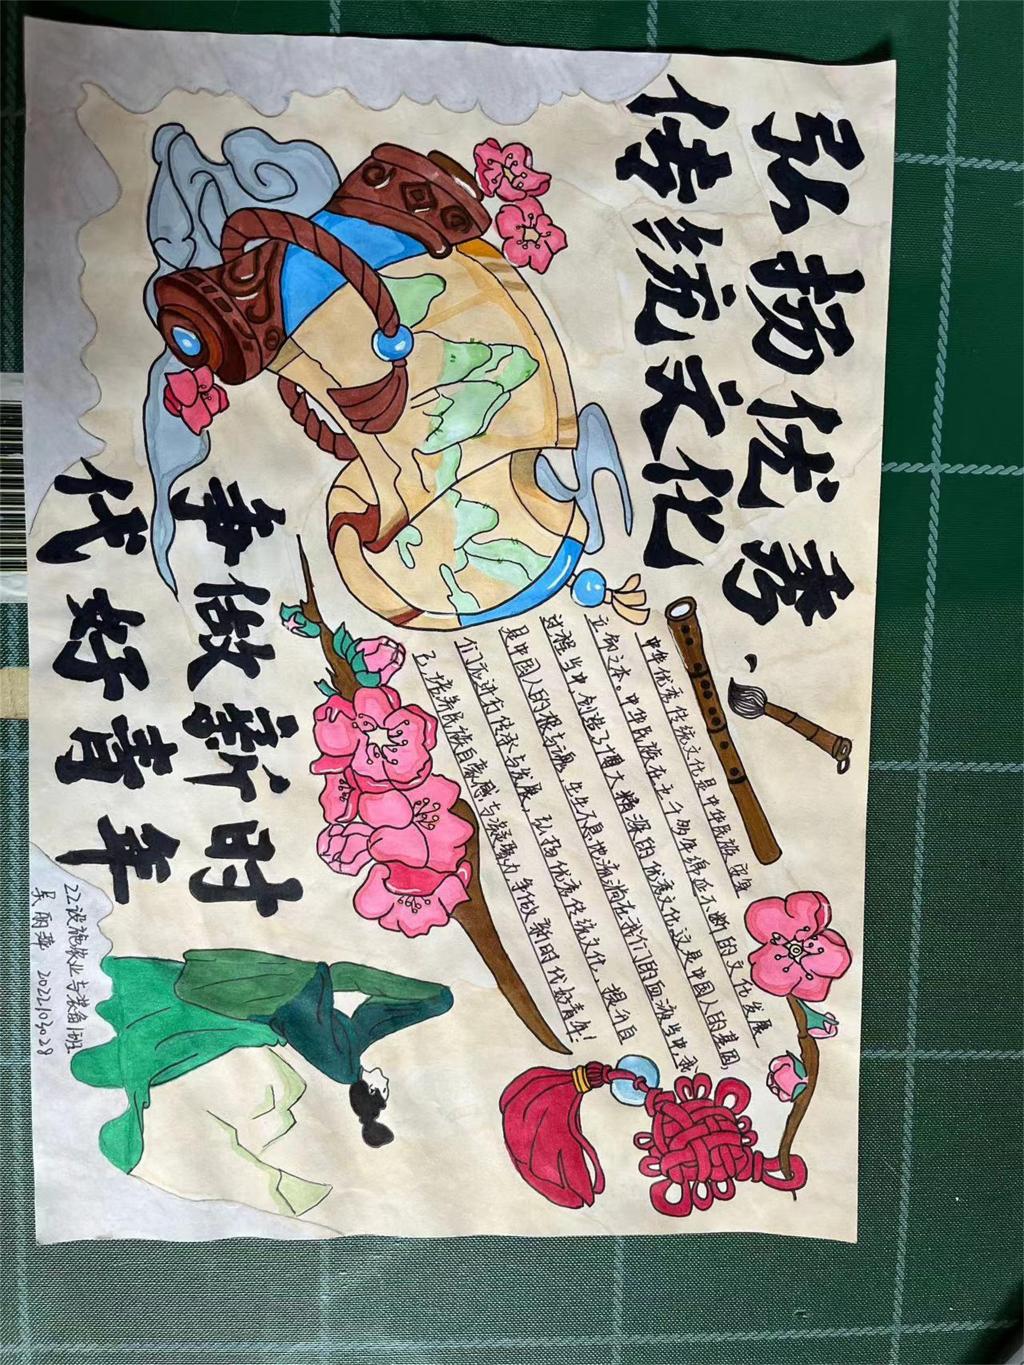 弘扬优秀
传统文化
中华优秀传统文化是中华民族安全
立命之本。中华民族在上千多年绵延不断的文化发展
过程当中,创造了博大精深的优秀文化,这是中国人的基因,
是中国人的根与魂,生生不息地流淌在我们的血液当中,我
们应进行传承与发展,弘扬优秀传统文化,提升自
己,培养民族自豪感与凝聚力,争做新时代好青年!
争做新时
代好青年
22设施农业与装备1班
吴雨萍 2022103028